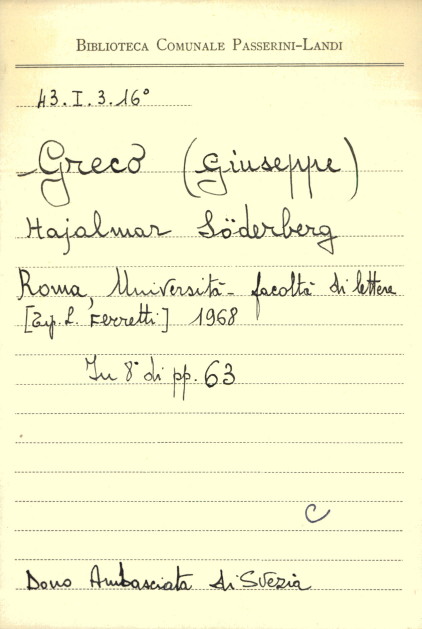 BIBLIOTECA COMUNALE PASSERINI-LANDI
43.I.3.16°
Greco (Giuseppe)
Hajalmar Söderberg
Roma, Università - facoltà di lettere
[Tip. L. Ferretti] 1968
In 8° di pp. 63
C
Dono Ambasciata di Svezia